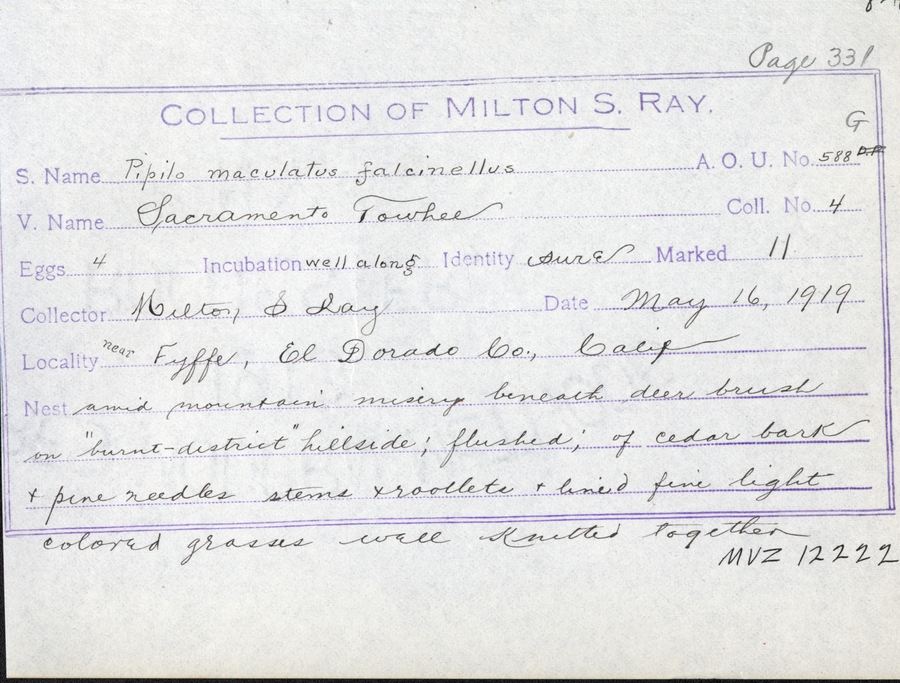 Page 331
COLLECTION OF MILTON S. RAY.
G
S. Name Pipilo maculatus falcinellus A. O. U. No. 588
V. Name Sacramento Towhee Coll. No. 4
Eggs 4 Incubation well along Identity sure Marked 11
Collector Milton S Ray Date May 16, 1919
Locality near Fyffe, El Dorado Co., Calif
Nest amid mountain misery beneath deer brush
on "burnt-district" hillside; flushed; of cedar bark
+ pine needles stems + rootlets + lined fine light
colored grasses well knitted together
MVZ 12222